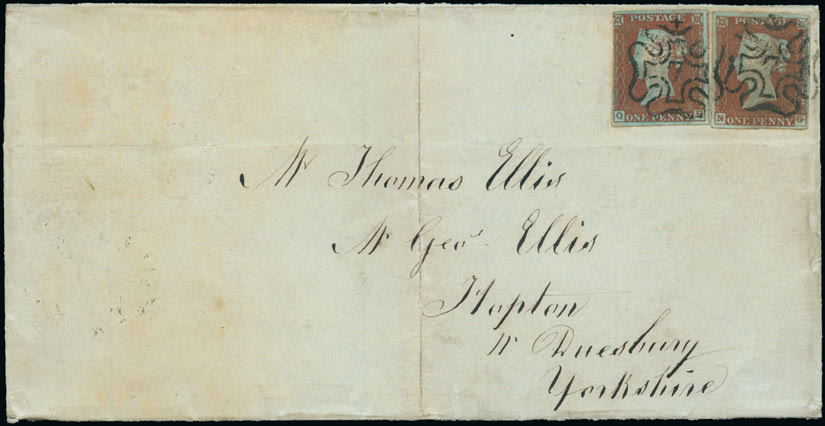 POSTAGE POSTAGE
ONE PENNY ONE PENNY
Q N G
Mr Thomas Ellis
Mr Geo. Ellis
Hopton
Nr Duesbury
Yorkshire